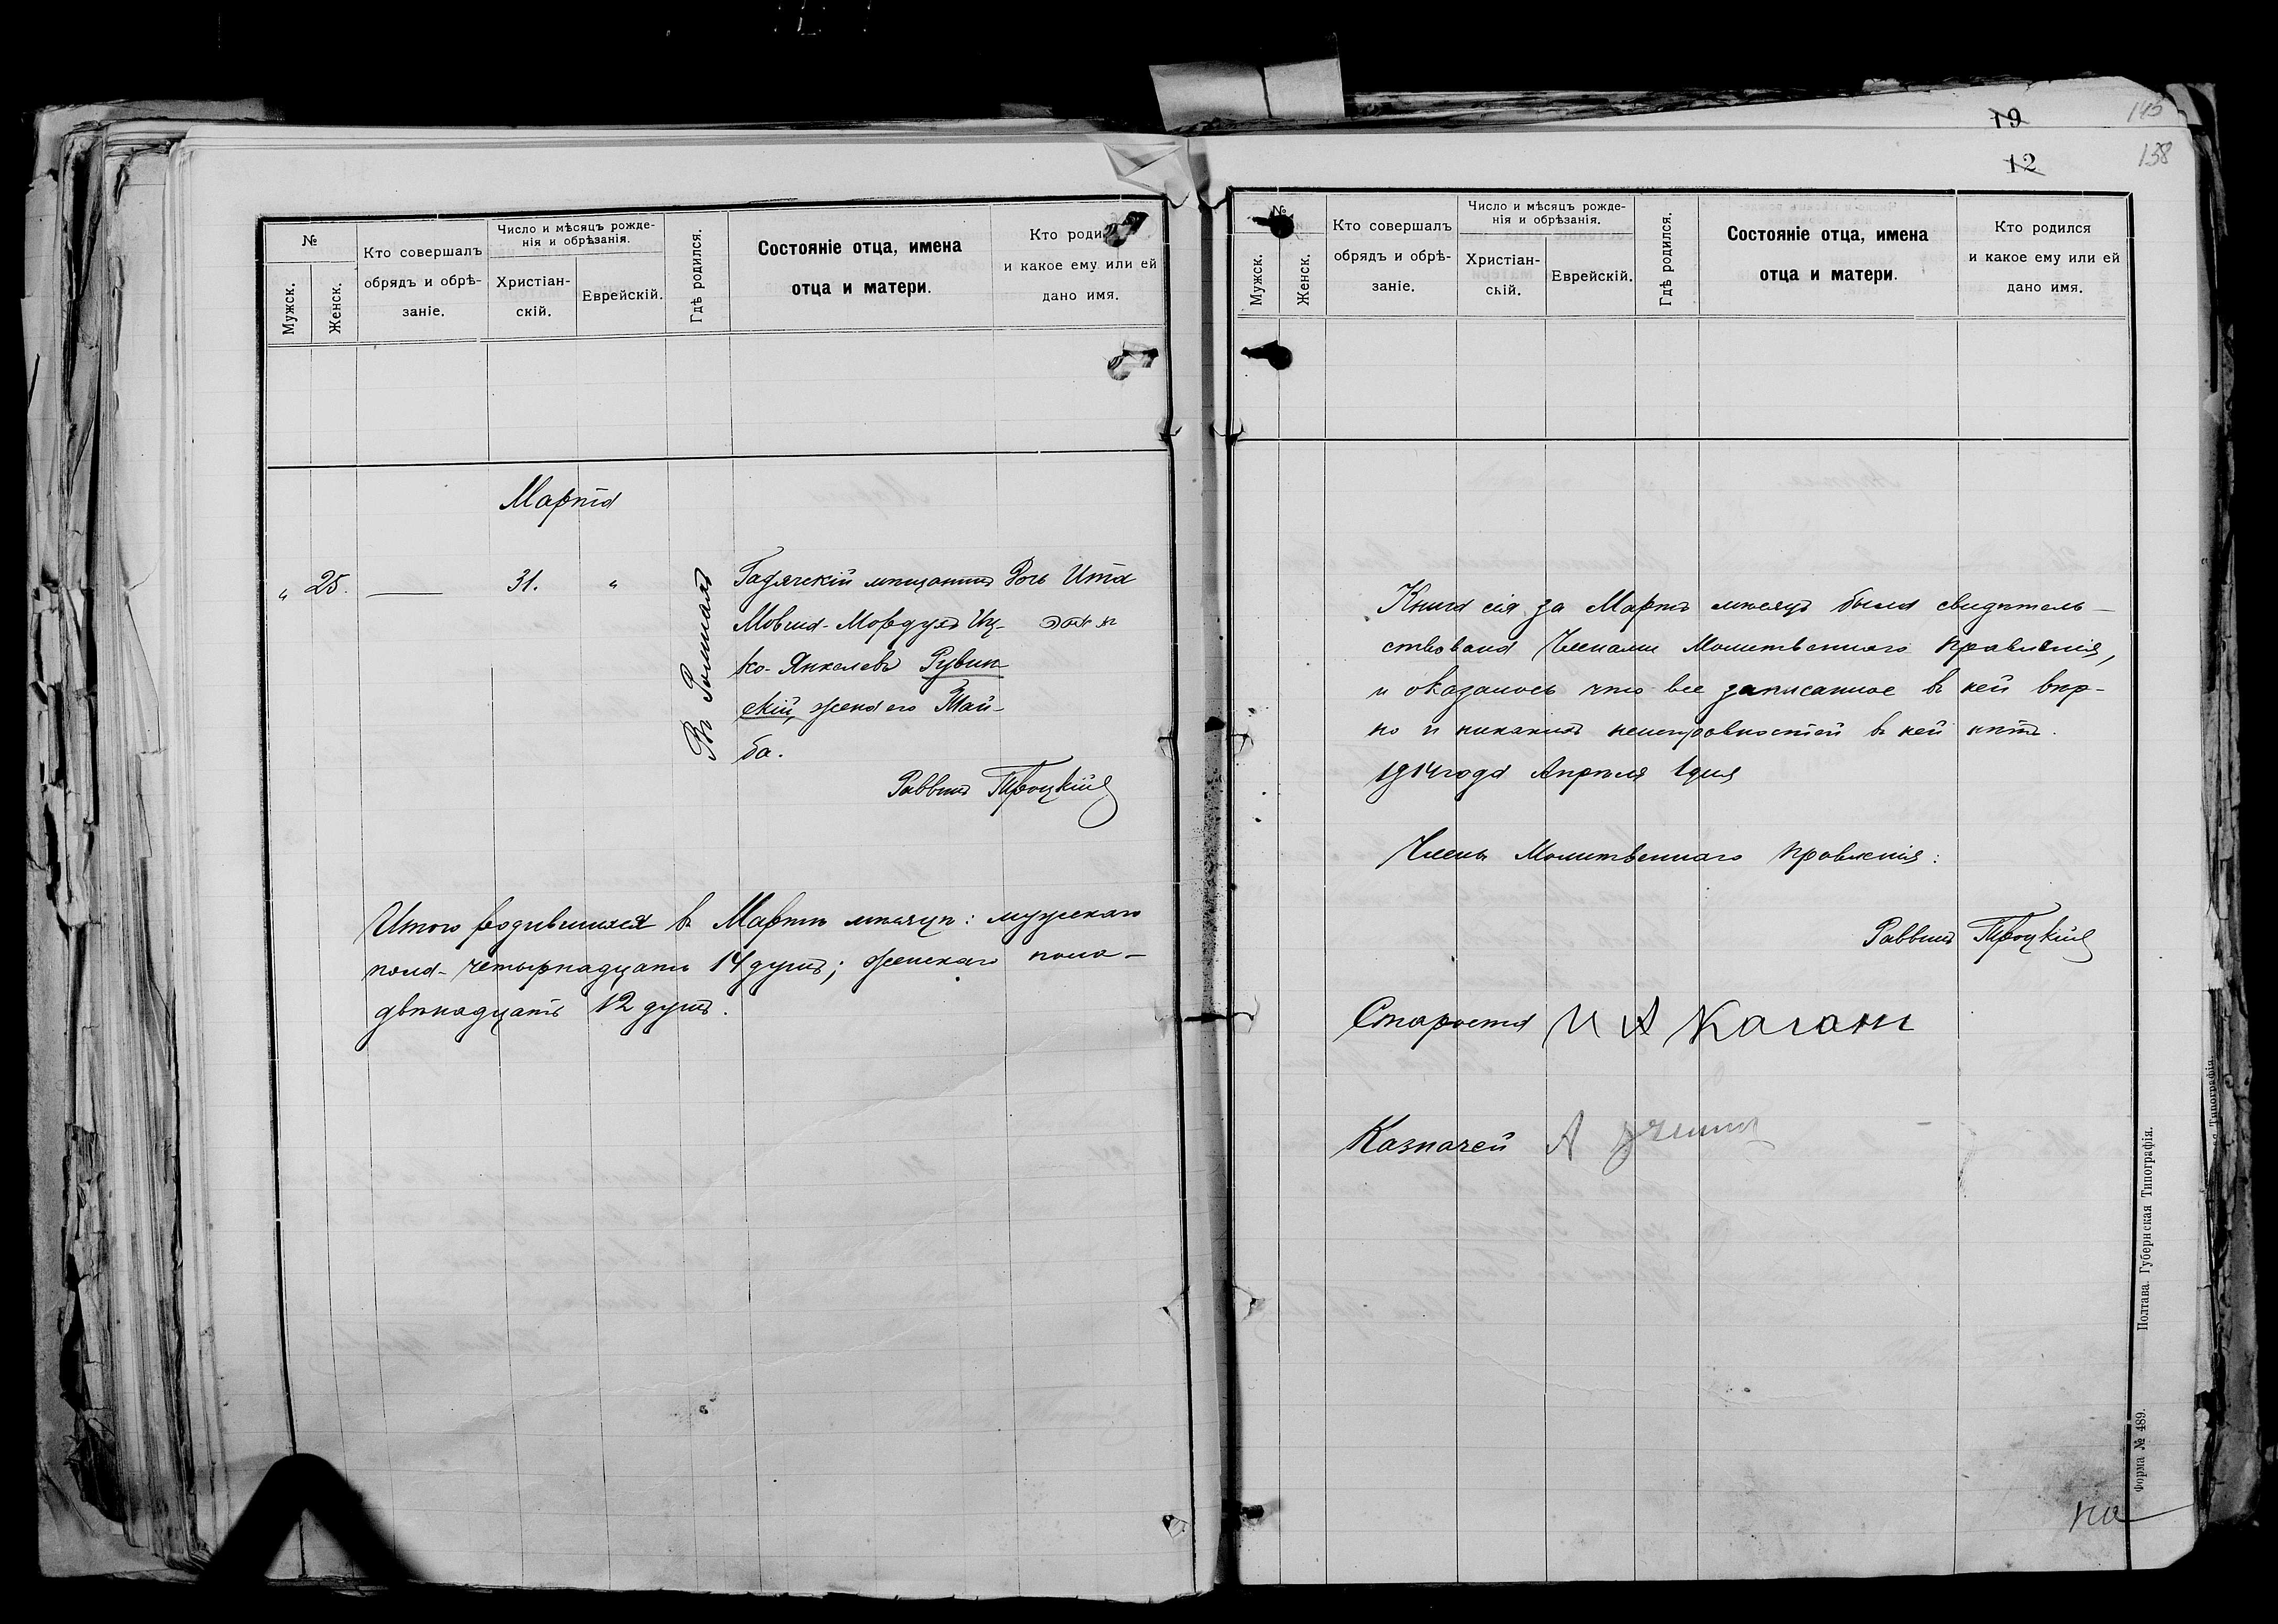 №
Мужск.
Женск.
Кто совершалъ
обрядъ и обрѣ-
заніе.
Число и мѣсяцъ рожде-
нія и обрѣзанія.
Христіан-
скій.
Еврейскій.
Гдѣ родился.
Состояніе отца, имена
отца и матери.
Кто роди
и какое ему или ей
дано имя.
Марта
„ 25. 31. „
Въ Ромнахъ
Гадячскій мѣщанинъ
Мовша-Мордухъ Иц-
ко-Янкелевъ Рувин-
скій, жена его Тай-
ба.
Дочь Ита
Раввинъ Троцкій
Итого родившихся въ Мартѣ мѣсяцѣ: мужскаго
пола - четырнадцать 14 душъ; женскаго пола -
двѣнадцать 12 душъ.
19
12
145
138
№
Мужск.
Женск.
Кто совершалъ
обрядъ и обрѣ-
заніе.
Число и мѣсяцъ рожде-
нія и обрѣзанія.
Христіан-
скій.
Еврейскій.
Гдѣ родился.
Состояніе отца, имена
отца и матери.
Кто родился
и какое ему или ей
дано имя.
Книга сія за Мартъ мѣсяцъ была свидѣтель-
ствована Членами Молитвеннаго Правленія,
и оказалось что все записанное въ ней вѣр-
но и никакихъ неисправностей въ ней нѣтъ.
1914 года Апрѣля 1 дня
Члены Молитвеннаго Правленія:
Раввинъ Троцкій
Староста И А Каганъ
Казначей А
Форма № 489. Полтава. Губернская Типографія.